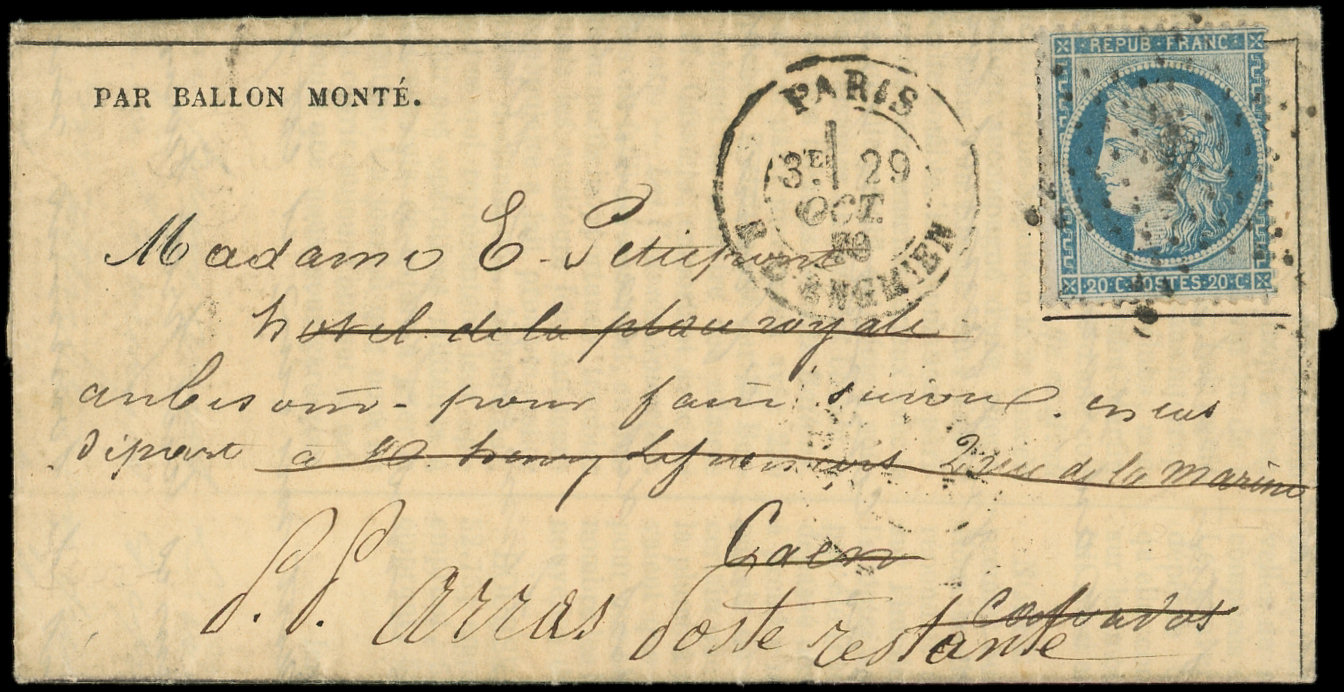 PAR BALLON MONTÉ.
REPUB·FRANC·
20·C·POSTES·20·C·
PARIS
3E 29
OCT.
70
R. D'ENGHIEN
Madame E.
hotel de la place royale
au besoin pour faire suivre en cas
départ à M. henry 2 rue de la marine
Caen
Calvados
P.P. Arras poste restante